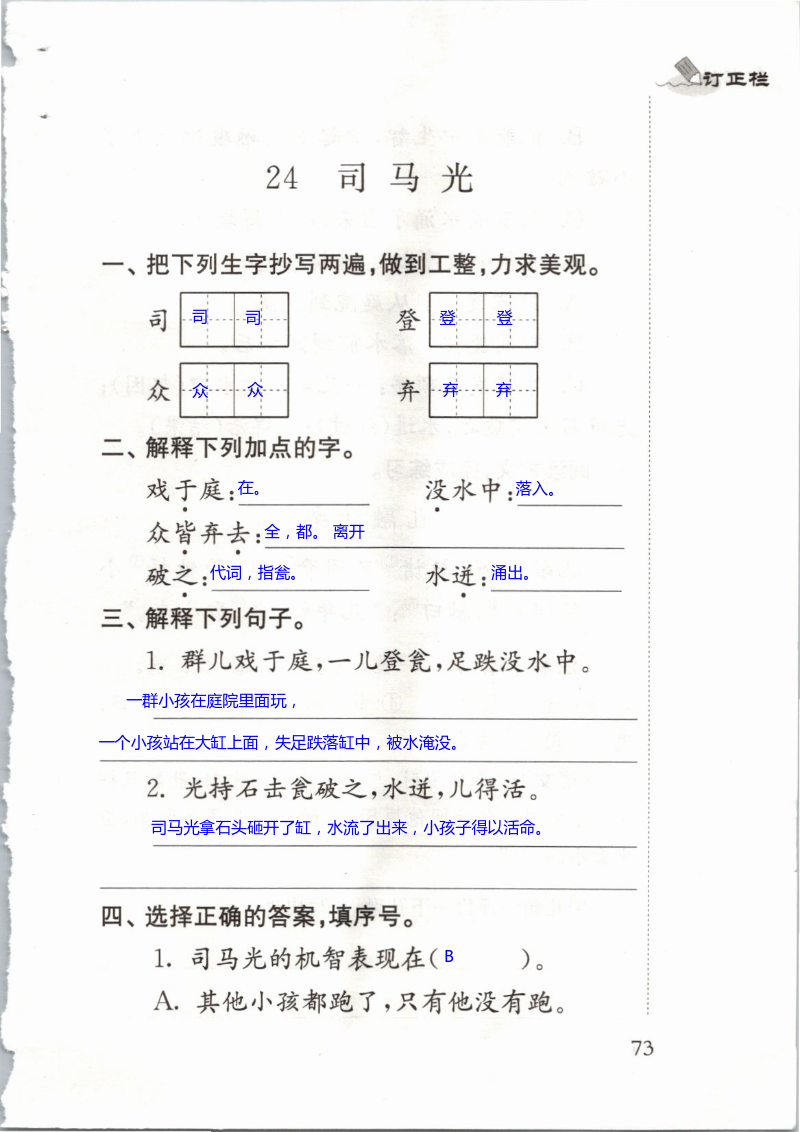 订正栏
24 司马光
一、把下列生字抄写两遍，做到工整，力求美观。
司 司 司 登 登 登
众 众 众 弃 弃 弃
二、解释下列加点的字。
戏于庭：在。 没水中：落入。
众皆弃去：全，都。 离开
破之：代词，指瓮。 水迸：涌出。
三、解释下列句子。
1. 群儿戏于庭，一儿登瓮，足跌没水中。
一群小孩在庭院里面玩，
一个小孩站在大缸上面，失足跌落缸中，被水淹没。
2. 光持石击瓮破之，水迸，儿得活。
司马光拿石头砸开了缸，水流了出来，小孩子得以活命。
四、选择正确的答案，填序号。
1. 司马光的机智表现在( B )。
A. 其他小孩都跑了，只有他没有跑。
73